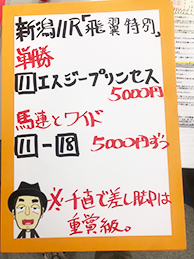 新潟11R「飛翼特別」
単勝
11エスジープリンセス
5000円
馬連とワイド
11-18 5000円ずつ
※千直で差し脚は
重賞級。